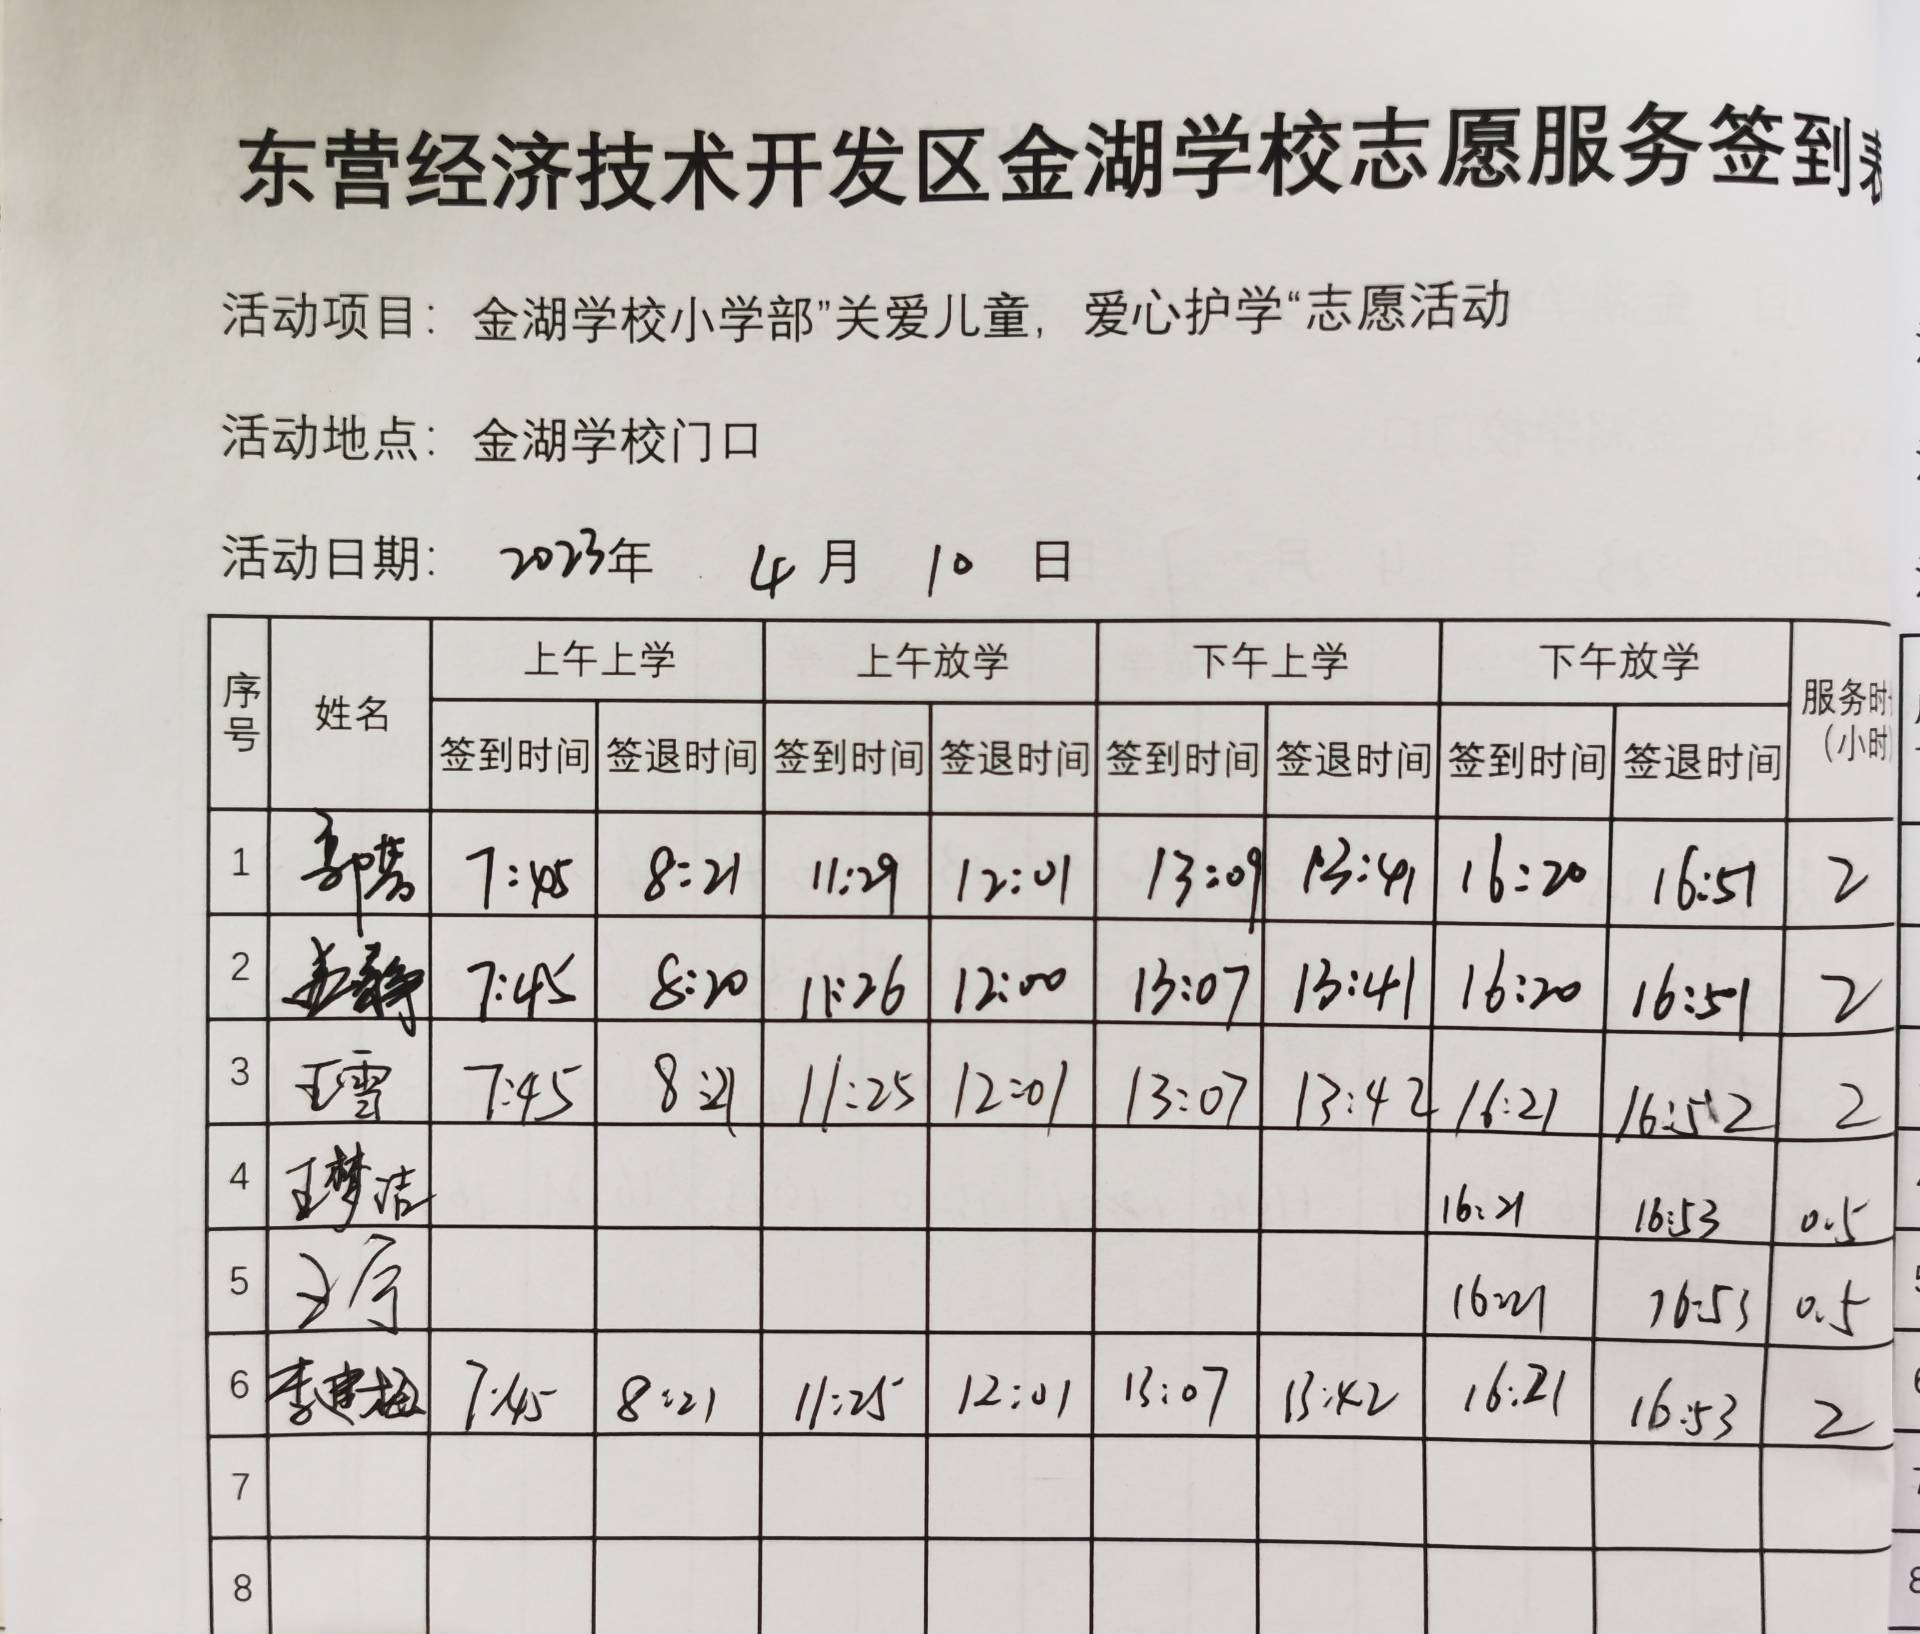 东营经济技术开发区金湖学校志愿服务签到表
活动项目：金湖学校小学部”关爱儿童，爱心护学“志愿活动
活动地点：金湖学校门口
活动日期：2023年 4月 10日
序号 姓名 上午上学 上午放学 下午上学 下午放学 服务时 (小时
签到时间 签退时间 签到时间 签退时间 签到时间 签退时间 签到时间 签退时间
1 7:45 8:21 11:29 12:01 13:09 13:41 16:20 16:51 2
2 7:45 8:20 11:26 12:00 13:07 13:41 16:20 16:51 2
3 王雪 7:45 8:21 11:25 12:01 13:07 13:42 16:21 16:52 2
4 王梦洁 16:21 16:53 0.5
5 16:21 16:53 0.5
6 李建梅 7:45 8:21 11:25 12:01 13:07 13:42 16:21 16:53 2
7
8